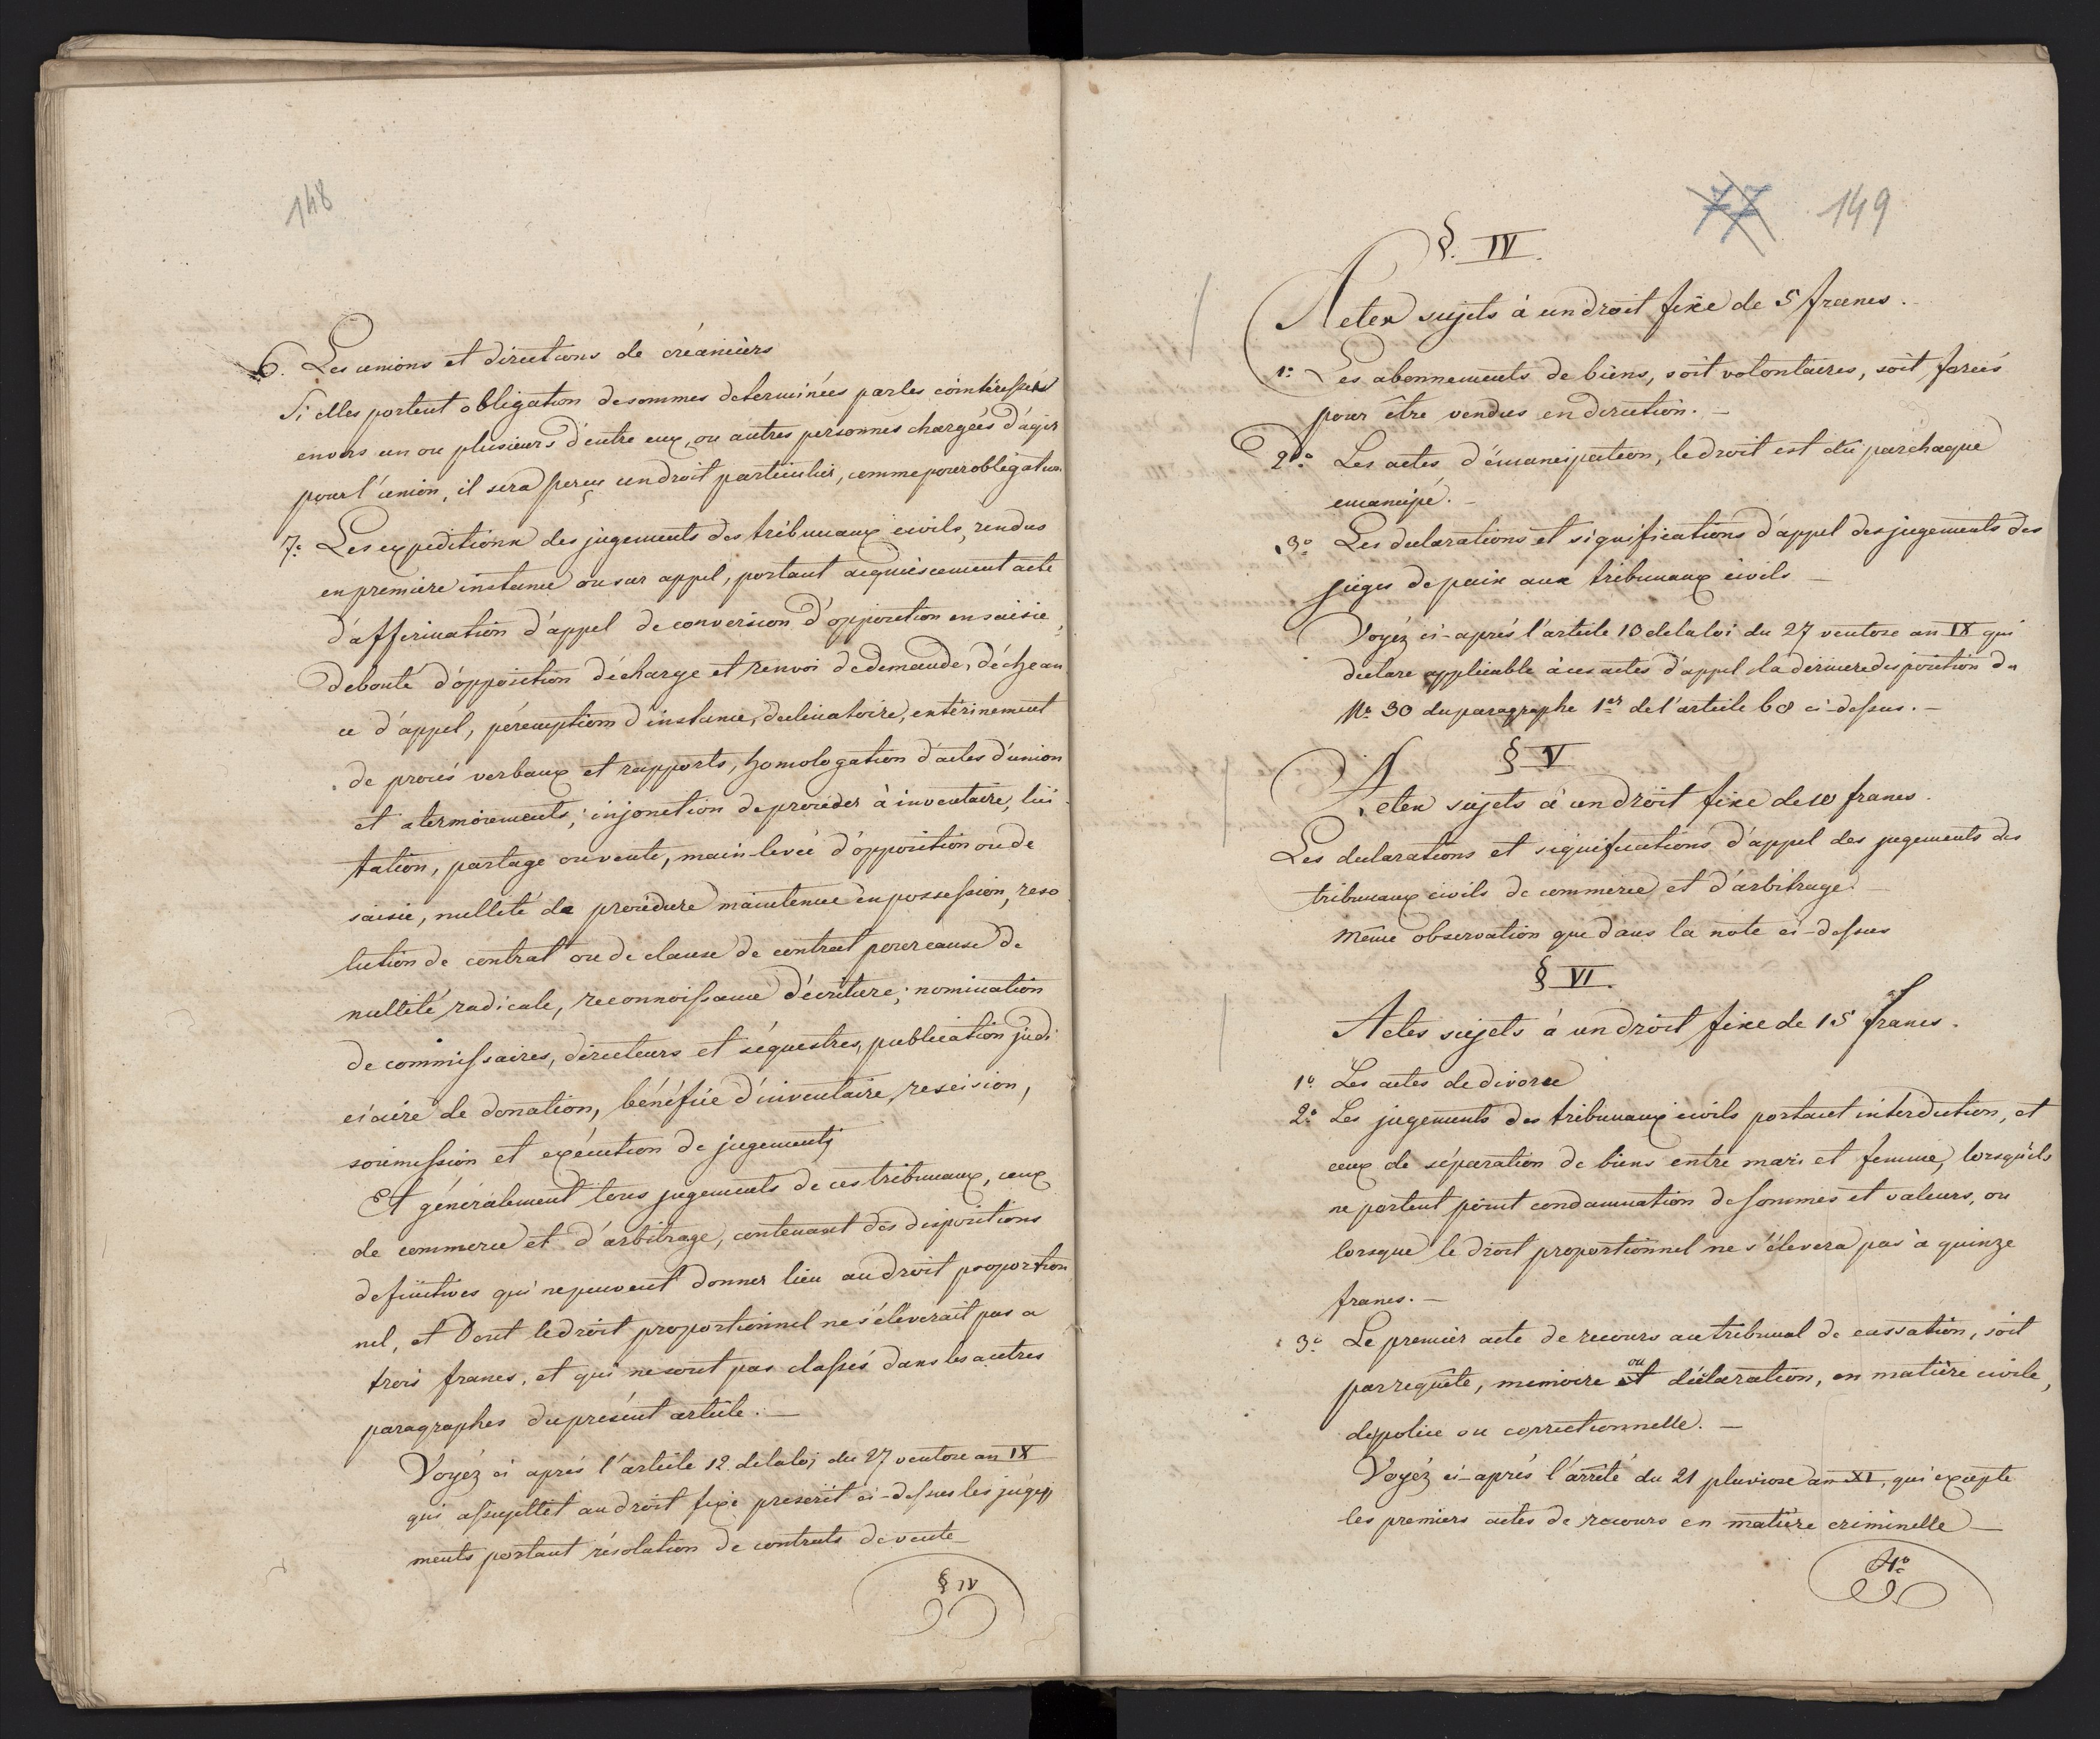 148
6. Les unions et directions de créanciers
Si elles portent obligation de sommes determinées par les cointéressés
envers un ou plusieurs d'entre eux, ou autres personnes chargées d'agir
pour l'union, il sera perçu un droit particulier, comme pour obligation
7.° Les expeditions des jugements des tribunaux civils, rendus
en premiere instance ou sur appel, portant acquiescement acte
d'affirmation d'appel de conversion d'opposition en saisie,
debouté d'opposition décharge et renvoi de demande, déchean
ce d'appel, péremption d'instance, declinatoire, entérinement
de procés verbaux et rapports, homologation d'actes d'union
et atermoiements; injonction de procéder à inventaire, lici
tation, partage ou vente, main-levée d'opposition ou de
saisie, nullité de procédure maintenue en possession, reso
lution de contrat ou de clause de contrat pour cause de
nullité radicale, reconnoissance d'écriture; nomination
de commissaires, directeurs et séquestres, publication judi
ciaire de donation, bénéfice d'inventaire, rescision,
soumission et exécution de jugements
Et généralement tous jugements de ces tribunaux, ceux
de commerce et d'arbitrage, contenant des dispositions
definitives qui ne peuvent donner lieu au droit proportion
nel, et Dont le droit proportionnel ne s'éleverait pas a
trois francs, et qui ne sont pas classés dans les autres
paragraphes du présent article. —
Voyéz ci aprés l'article 12 de la loi du 27 ventose an IX
qui assujettit au droit fixe prescrit ci-dessus les juge
ments portant résolution de contrats de vente
§ IV
77 149
§. IV.
Actes sujets à un droit fixe de 5 francs.
1.° Les abonnements de biens, soit volontaires, soit forcés
pour être vendus en direction. —
2.° Les actes d'émancipation, le droit est dû par chaque
emancipé. —
3.° Les declarations et significations d'appel des jugements des
juges de paix aux tribunaux civils —
Voyéz ci-aprés l'article 10 de la loi du 27 ventose an IX qui
declare applicable à ces actes d'appel la derniere disposition du
N.° 30 du paragraphe 1er de l'article 68 ci-dessus. —
§ V
Actes sujets à un droit fixe de 10 francs.
Les declarations et significations d'appel des jugements des
tribunaux civils de commerce et d'arbitrage. —
même observation que dans la note ci-dessus
§ VI.
Actes sujets à un droit fixe de 15 francs.
1.° Les actes de divorce
2.° Les jugements des tribunaux civils portant interdiction, et
ceux de séparation de biens entre mari et femme, lorsqu'ils
ne portent point condamnation de sommes et valeurs, ou
lorsque le droit proportionnel ne s'élevera pas à quinze
francs. —
3.° Le premier acte de recours au tribunal de cassation, soit
par requête, memoire ou déclaration, en matière civile,
de police ou correctionnelle. —
Voyéz ci-aprés l'arrêté du 21 pluviose an XI, qui excepte
les premiers actes de recours en matière criminelle —
4.°